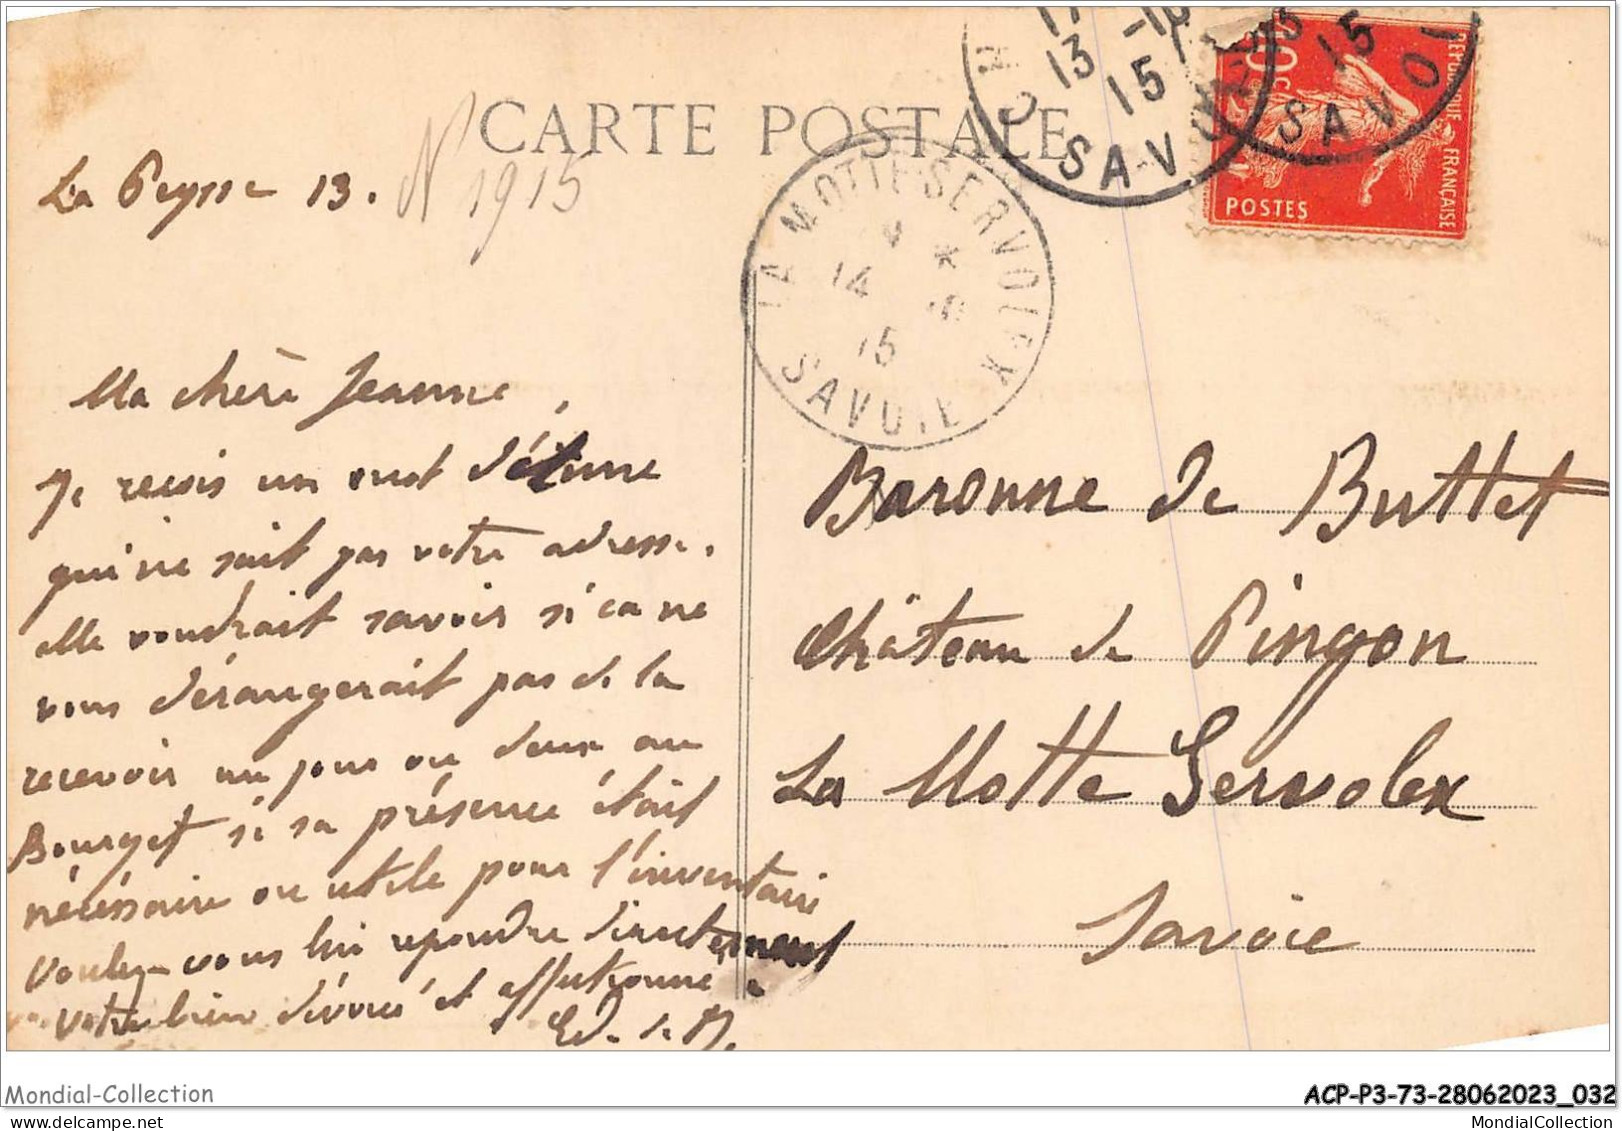 CARTE POSTALE
La Peysse 13. N 1915
Ma chère Jeanne,
Je reçois un mot d'étienne
qui ne sait pas votre adresse.
elle voudrait savoir si ça ne
vous dérangerait pas de la
recevoir un jour ou deux au
Bourget si sa présence était
nécéssaire ou utile pour l'inventaire
voulez-vous lui repondre directement
votre bien dévoué et affectionné
Ed. de M.
13
15
SAVO
15
SAVO
REPUBLIQUE FRANÇAISE
10 c
POSTES
LA MOTTE-SERVOLEX
14
15
SAVOIE
Baronne de Buttet
Château de Pingon
La Motte Servolex
Savoie
Mondial-Collection
ACP-P3-73-28062023_032
MondialCollection